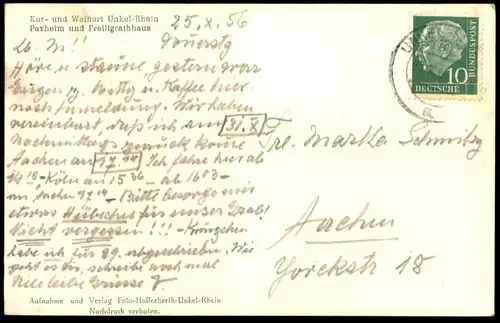 Kur- und Weinort Unkel-Rhein
Paxheim und Freiligrathhaus
25.X.56
Lb. M.!! Donerstg
Höre u staune gestern war
z. Mittg u. Kaffee hier
nach Anmeldung. Wir haben
vereinbart, daß ich am 31.8
Nachmittags zurück kome
Aachen an 17.14 Ich fahre hier ab
18 - Köln an 15 36 - ab 16 03 -
an Aachen 17 14 - Bitte besorge mir
etwas Hübsches für unser Grab!
Nicht vergessen!!! - Kränzchen
habe ich für 29. abgeschrieben. Wie
geht es dir, schreibe noch mal
Viele liebe Grüsse
Frl. Martha Schmitz
Aachen
Yorckstr 18
10
DEUTSCHE
BUNDESPOST
Aufnahme und Verlag Foto-Hofferberth-Unkel-Rhein
Nachdruck verboten.